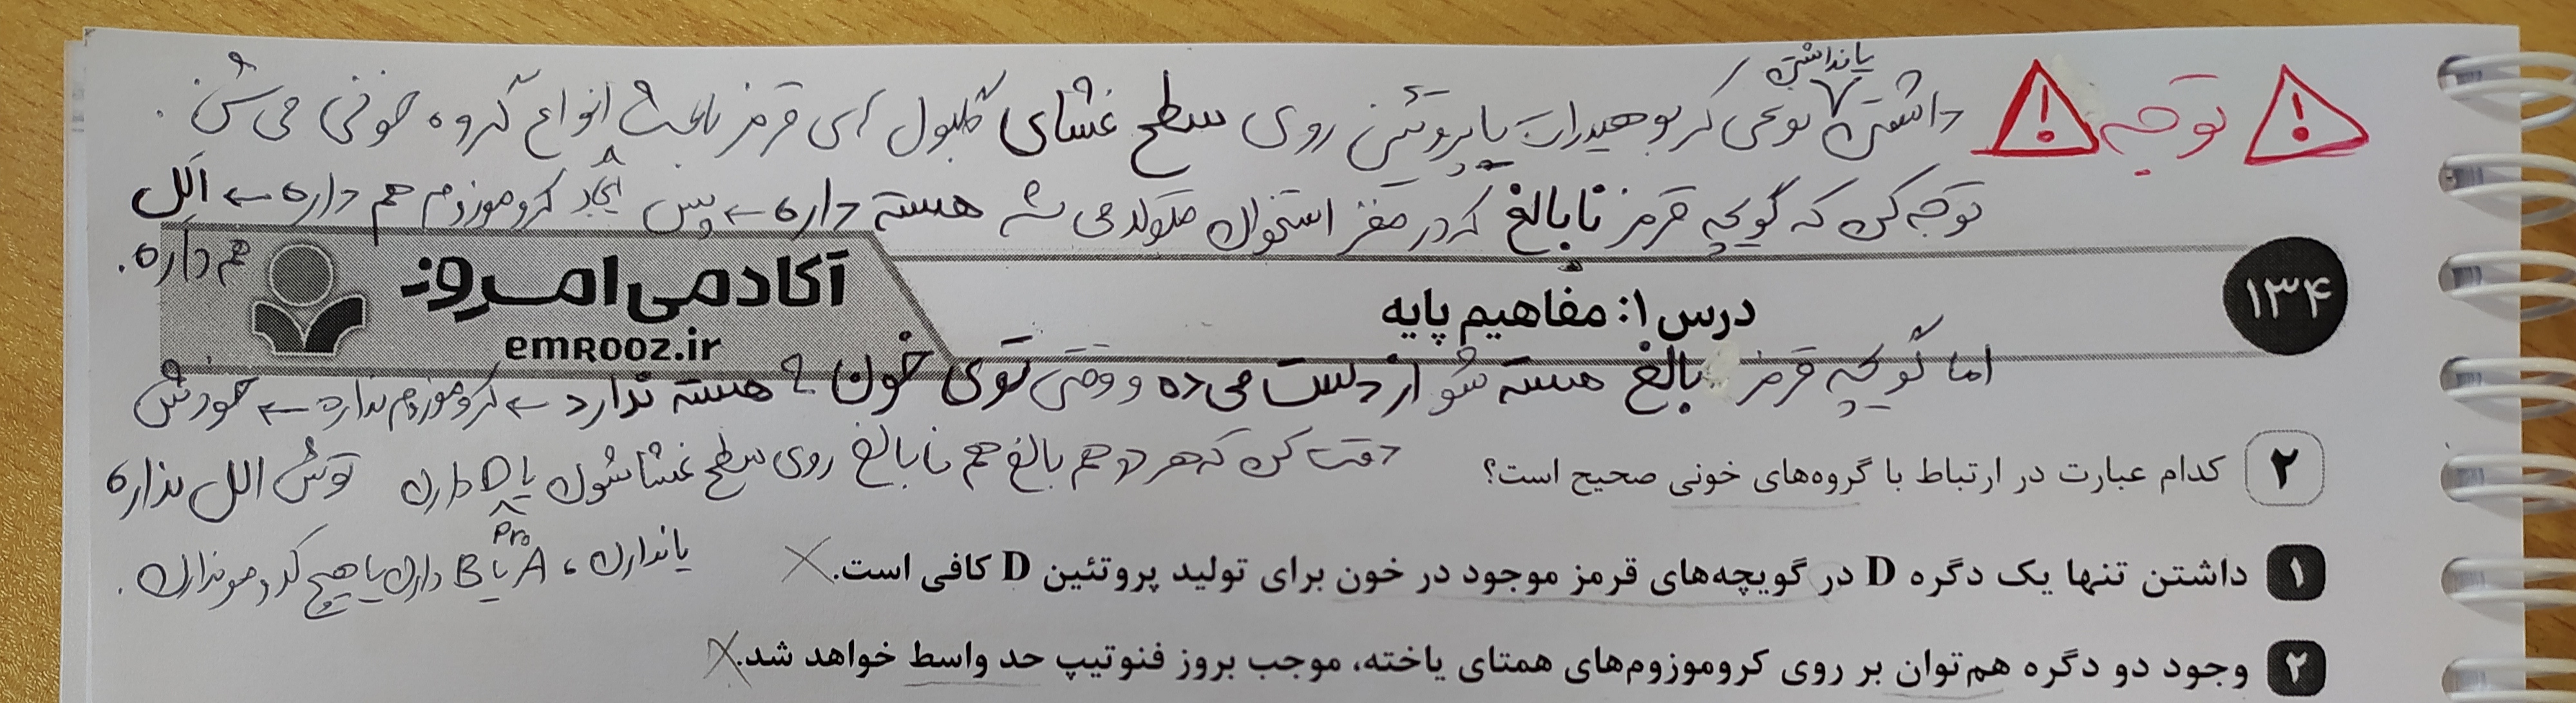 توجه
داشتن یا نداشتن نوعی کربوهیدرات یا پروتئین روی سطح غشای گلبول ای قرمز باعث ایجاد انواع گروه خونی می شن.
توجه کن که گویچه قرمز نابالغ که در مغز استخوان متولد می شه هسته داره ← پس کروموزوم هم داره ← الل
هم داره.
آکادمی امروز
emrooz.ir
درس ۱: مفاهیم پایه
۱۳۴
اما گویچه قرمز بالغ هسته شو از دست می ده و وقتی توی خون ؟ هسته ندارد ← کروموزوم نداره ← خودش
توش الل نداره
دقت کن که هر دو هم بالغ هم نابالغ روی سطح غشاشون یا Pro D دارن
یا ندارن، A یا B دارن یا هیچ کدومو ندارن.
۲ کدام عبارت در ارتباط با گروه‌های خونی صحیح است؟
۱ داشتن تنها یک دگره D در گویچه‌های قرمز موجود در خون برای تولید پروتئین D کافی است.
۲ وجود دو دگره هم‌توان بر روی کروموزوم‌های همتای یاخته، موجب بروز فنوتیپ حد واسط خواهد شد.